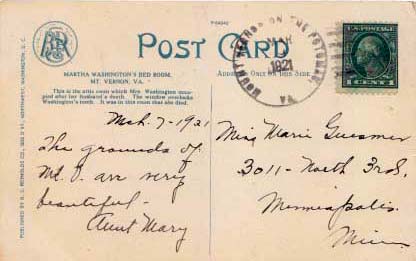 POST CARD
MARTHA WASHINGTON'S BED ROOM,
MT. VERNON, VA.
This is the attic room which Mrs. Washington occu-
pied after her husband's death. The window overlooks
Washington's tomb. It was in this room that she died.
ADDRESS ONLY ON THIS SIDE.
MOUNT VERNON ON THE POTOMAC, VA
MAR
1921
U.S. POSTAGE
1 CENT 1
Mch. 7-1921
The grounds of
Mt. V. are very
beautiful.-
Aunt Mary
Miss Marie
3011- North 3rd,
Minneapolis.
Minn
PUBLISHED BY B. S. REYNOLDS CO., WASHINGTON, D. C.